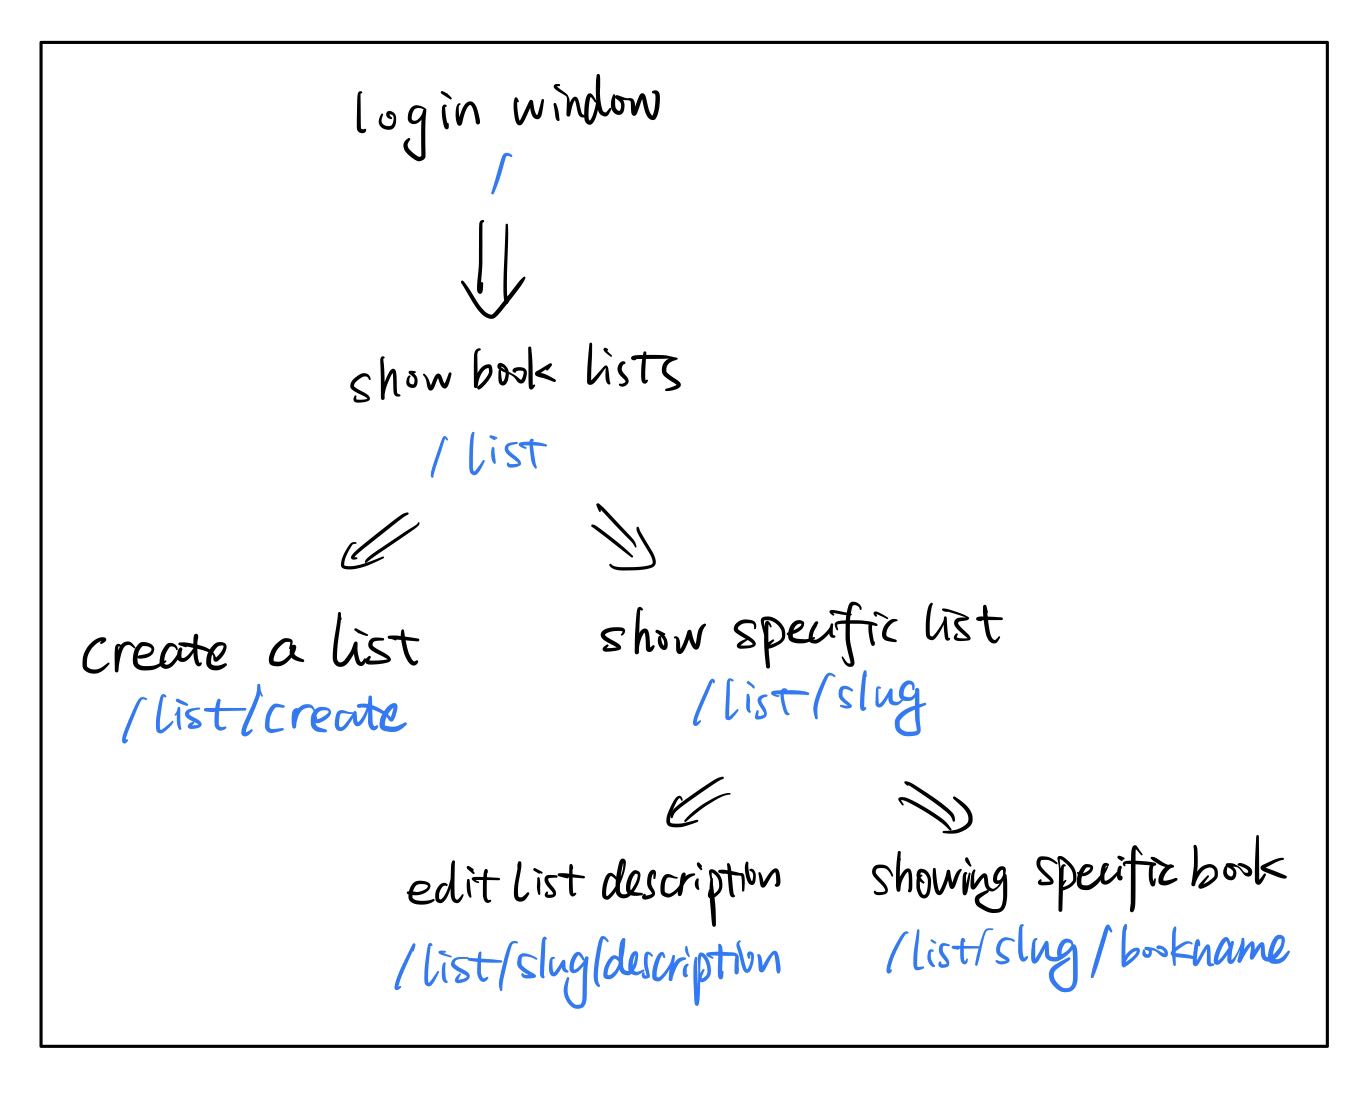 login window
/
show book lists
/list
create a list
/list/create
show specific list
/list/slug
edit list description
/list/slug/description
showing specific book
/list/slug/bookname